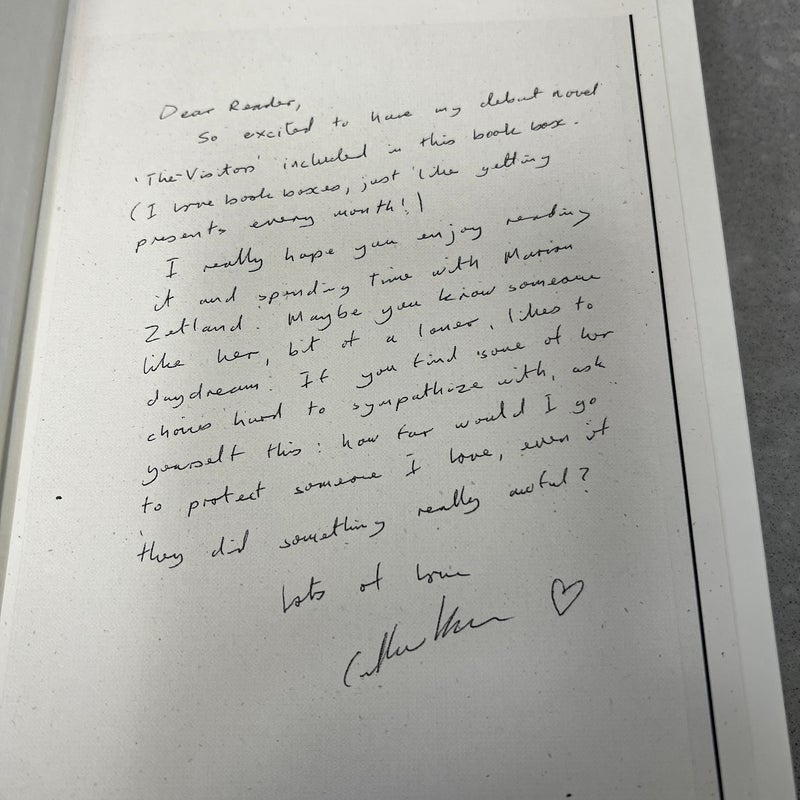 Dear Reader,
So excited to have my debut novel
'The Visitors' included in this book box.
(I love book boxes, just like getting
presents every month!)
I really hope you enjoy reading
it and spending time with Marion
Zetland. Maybe you know someone
like her, bit of a loner, likes to
daydream. If you find some of her
choices hard to sympathize with, ask
yourself this: how far would I go
to protect someone I love, even if
they did something really awful?
lots of love